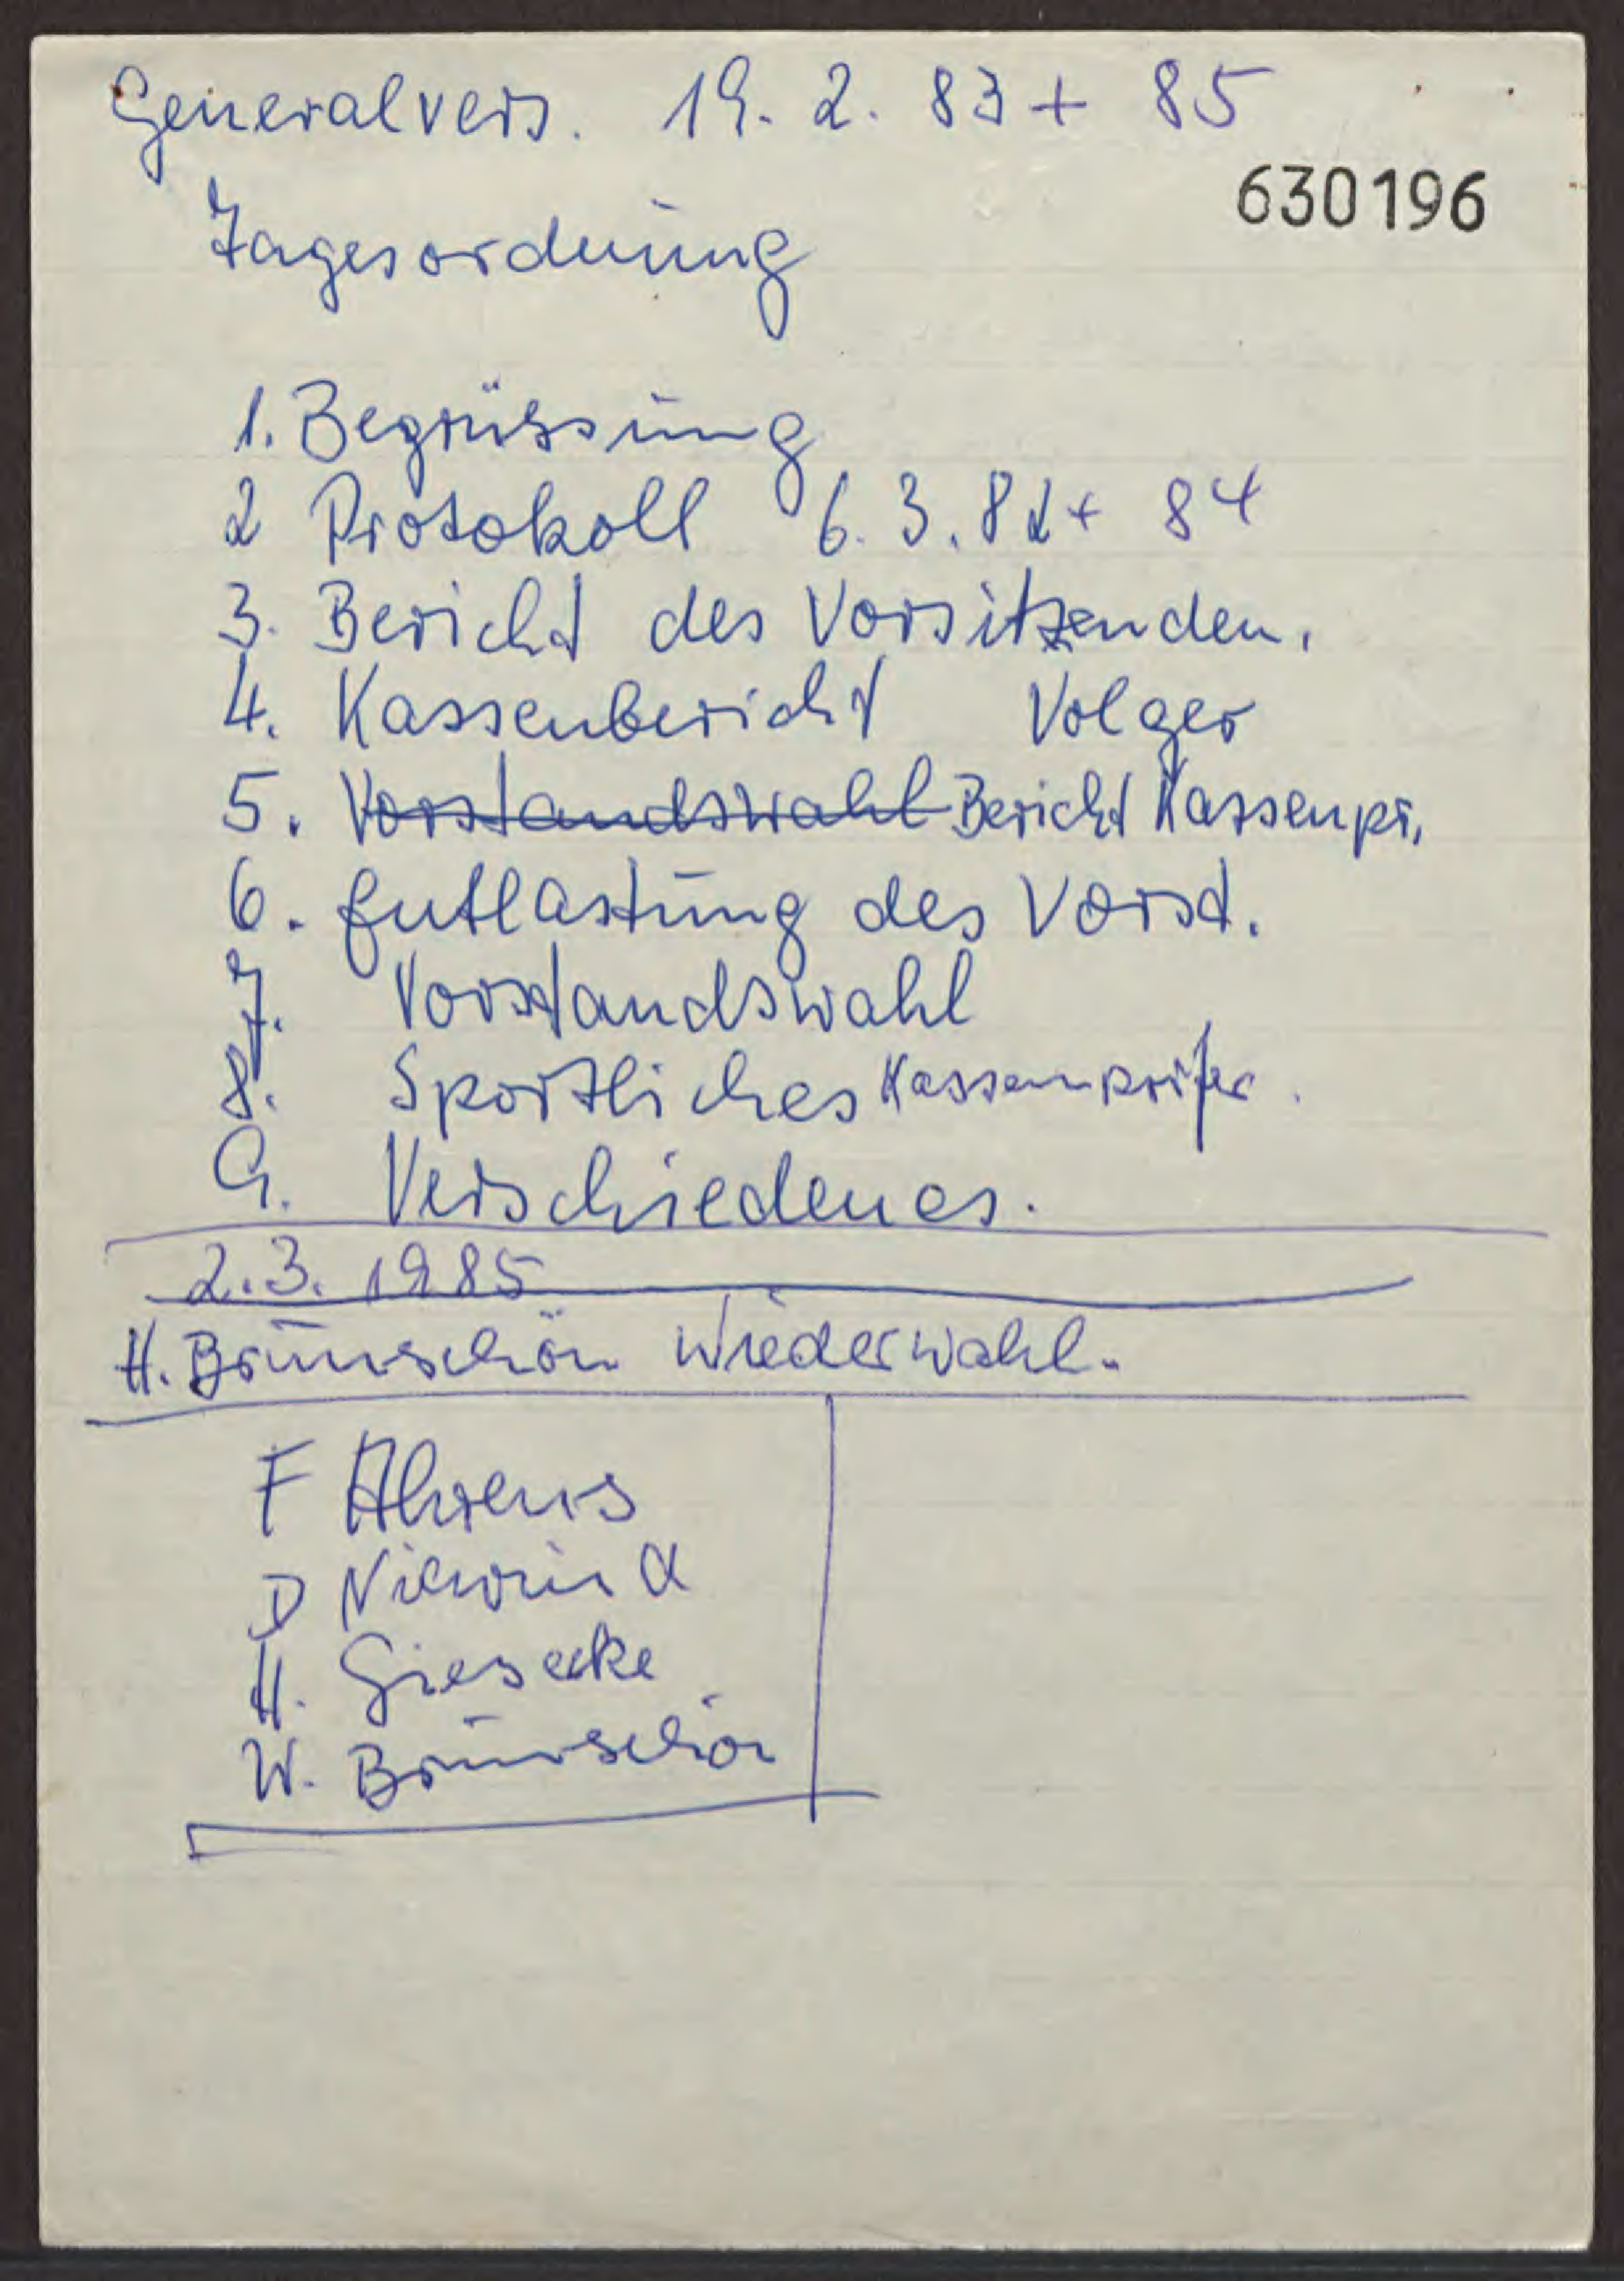 Generalvers. 19. 2. 83 + 85
630196
Tagesordnung
1. Begrüssung
2 Protokoll 6. 3. 82 + 84
3. Bericht des Vorsitzenden.
4. Kassenbericht Volger
5. Vorstandswahl Bericht Kassenpr.
6. Entlastung des Vorst.
7. Vorstandswahl
8. Sportliches Kassenprüfer.
9. Verschiedenes.
2.3. 1985
H. Brünschön Wiederwahl.
F Ahrens
D
H. Giesecke
W. Brünschön